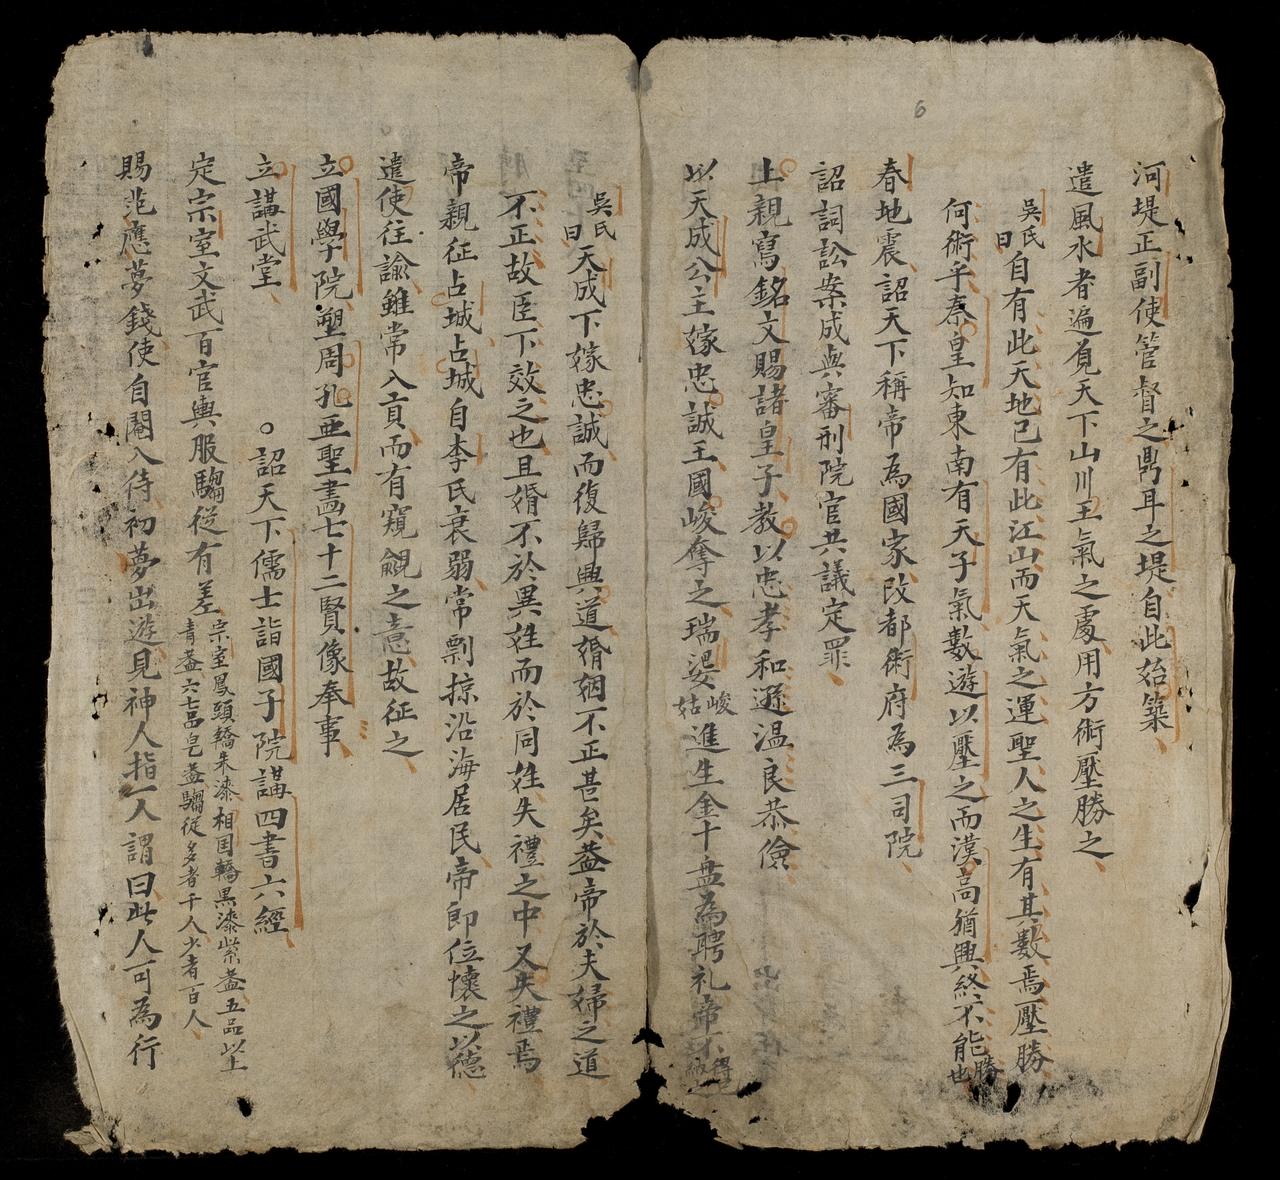 6
河堤正副使管督之鼎耳之堤自此始築
遣風水者遍覓天下山川王氣之處用方術壓勝之
吳氏曰自有此天地已有此江山而天氣之運聖人之生有其數焉壓勝
何術乎秦皇知東南有天子氣數遊以壓之而漢高猶興終不能勝也
春地震詔天下稱帝為國家改都衛府為三司院
詔詞訟案成與審刑院官共議定罪
上親寫銘文賜諸皇子教以忠孝和遜温良恭儉
以天成公主嫁忠誠王國峻奪之瑞婆峻姑進生金十盘為聘礼帝不得納之
吳氏曰天成下嫁忠誠而復歸興道婚姻不正甚矣蓋帝於夫婦之道
不正故臣下效之也且婚不於異姓而於同姓失禮之中又失禮焉
帝親征占城占城自李氏衰弱常剽掠沿海居民帝即位懷之以德
遣使往諭雖常入貢而有窺覦之意故征之
立國學院塑周孔亞聖畫七十二賢像奉事
立講武堂 ○詔天下儒士詣國子院講四書六經
定宗室文武百官輿服騶從有差宗室鳳頭轎朱漆相国轎黒漆紫蓋五品以上青蓋六七品皂蓋騶從多者千人少者百人
賜范應夢錢使自閹入侍初夢出遊見神人指一人謂曰此人可為行